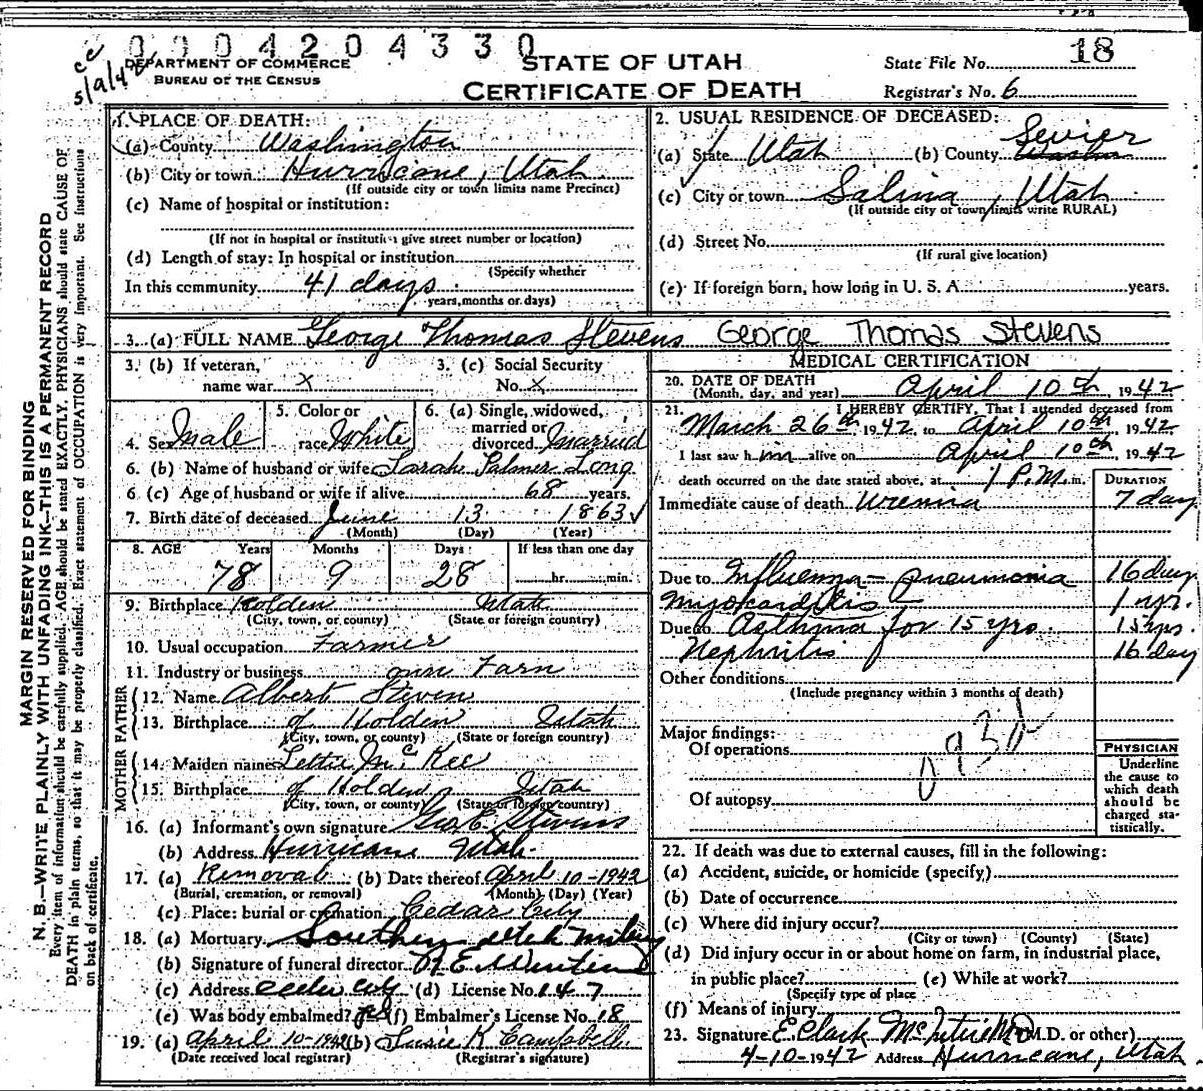 0004204330
cc
5/9/42
DEPARTMENT OF COMMERCE
BUREAU OF THE CENSUS
STATE OF UTAH
CERTIFICATE OF DEATH
State File No. 18
Registrar's No. 6
MARGIN RESERVED FOR BINDING
N. B.—WRITE PLAINLY WITH UNFADING INK—THIS IS A PERMANENT RECORD
Every item of information should be carefully supplied. AGE should be stated EXACTLY. PHYSICIANS should state CAUSE OF
DEATH in plain terms, so that it may be properly classified. Exact statement of OCCUPATION is very important. See instructions
on back of certificate.
1. PLACE OF DEATH:
(a) County Washington
(b) City or town Hurricane, Utah
(If outside city or town limits name Precinct)
(c) Name of hospital or institution:
(If not in hospital or institution give street number or location)
(d) Length of stay: In hospital or institution
(Specify whether
In this community 41 days
years, months or days)
2. USUAL RESIDENCE OF DECEASED:
(a) State Utah (b) County Sevier
(c) City or town Salina, Utah
(If outside city or town limits write RURAL)
(d) Street No.
(If rural give location)
(e) If foreign born, how long in U. S. A. years.
3. (a) FULL NAME George Thomas Stevens George Thomas Stevens
3. (b) If veteran, 3. (c) Social Security
name war X No. X
4. Sex Male 5. Color or race White 6. (a) Single, widowed, married or divorced Married
6. (b) Name of husband or wife Sarah Palmer Long
6 (c) Age of husband or wife if alive 68 years.
7. Birth date of deceased June 13 1863
(Month) (Day) (Year)
8. AGE Years Months Days If less than one day
78 9 28 hr. min.
9. Birthplace Holden Utah
(City, town, or county) (State or foreign country)
10. Usual occupation Farmer
11. Industry or business own Farm
FATHER
12. Name Albert Steven
13. Birthplace of Holden Utah
(City, town, or county) (State or foreign country)
MOTHER
14. Maiden name Lettie McKee
15. Birthplace of Holden Utah
(City, town, or county) (State or foreign country)
16. (a) Informant's own signature Geo. C. Stevens
(b) Address Hurricane Utah.
17. (a) Removal (b) Date thereof April 10-1942
(Burial, cremation, or removal) (Month) (Day) (Year)
(c) Place: burial or cremation Cedar City
18. (a) Mortuary Southern Utah
(b) Signature of funeral director
(c) Address Cedar City (d) License No. 147
(e) Was body embalmed? yes (f) Embalmer's License No. 18
19. (a) April 10-1942 (b) Susie K Campbell
(Date received local registrar) (Registrar's signature)
MEDICAL CERTIFICATION
20. DATE OF DEATH
(Month, day, and year) April 10th, 1942
21. I HEREBY CERTIFY, That I attended deceased from
March 26th 1942 to April 10th, 1942
I last saw him alive on April 10th, 1942
death occurred on the date stated above, at 1 P.M. m. DURATION
Immediate cause of death Uremia 7 day
Due to Influenza - pneumonia 16 day
Myocarditis 1 yr.
Due to Asthma for 15 yrs. 15 yrs.
Nephritis 16 day
Other conditions
(Include pregnancy within 3 months of death)
Major findings:
Of operations
Of autopsy
PHYSICIAN
Underline
the cause to
which death
should be
charged sta-
tistically.
22. If death was due to external causes, fill in the following:
(a) Accident, suicide, or homicide (specify)
(b) Date of occurrence
(c) Where did injury occur?
(City or town) (County) (State)
(d) Did injury occur in or about home on farm, in industrial place,
in public place? (e) While at work?
(Specify type of place
(f) Means of injury
23. Signature E. Clark McIntire MD (M.D. or other)
4-10-1942 Address Hurricane, Utah